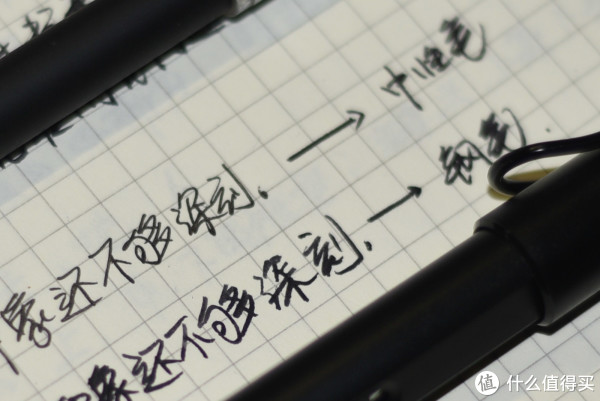 象还不够深刻. → 中性笔
象还不够深刻. → 钢笔.
值 什么值得买